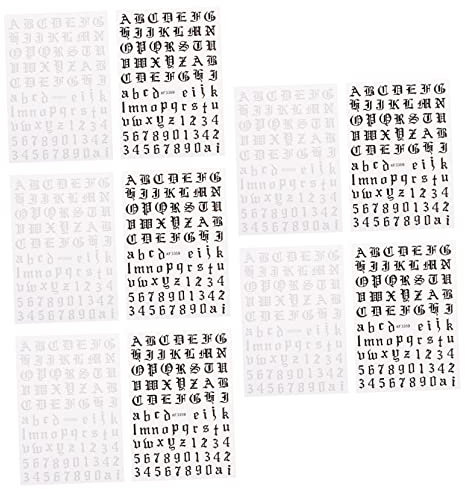 ABCDEFG
HIJKLMN
OPQRSTU
VWXYZAB
CDEFGHI
abcd eijk
lmnopqrstu
vwxyz1234
5678901342
34567890ai
ABCDEFG
HIJKLMN
OPQRSTU
VWXYZAB
CDEFGHI
abcd eijk
lmnopqrstu
vwxyz1234
5678901342
34567890ai
ABCDEFG
HIJKLMN
OPQRSTU
VWXYZAB
CDEFGHI
abcd eijk
lmnopqrstu
vwxyz1234
5678901342
34567890ai
ABCDEFG
HIJKLMN
OPQRSTU
VWXYZAB
CDEFGHI
abcd eijk
lmnopqrstu
vwxyz1234
5678901342
34567890ai
ABCDEFG
HIJKLMN
OPQRSTU
VWXYZAB
CDEFGHI
abcd eijk
lmnopqrstu
vwxyz1234
5678901342
34567890ai
ABCDEFG
HIJKLMN
OPQRSTU
VWXYZAB
CDEFGHI
abcd eijk
lmnopqrstu
vwxyz1234
5678901342
34567890ai
ABCDEFG
HIJKLMN
OPQRSTU
VWXYZAB
CDEFGHI
abcd eijk
lmnopqrstu
vwxyz1234
5678901342
34567890ai
ABCDEFG
HIJKLMN
OPQRSTU
VWXYZAB
CDEFGHI
abcd eijk
lmnopqrstu
vwxyz1234
5678901342
34567890ai
ABCDEFG
HIJKLMN
OPQRSTU
VWXYZAB
CDEFGHI
abcd eijk
lmnopqrstu
vwxyz1234
5678901342
34567890ai
ABCDEFG
HIJKLMN
OPQRSTU
VWXYZAB
CDEFGHI
abcd eijk
lmnopqrstu
vwxyz1234
5678901342
34567890ai